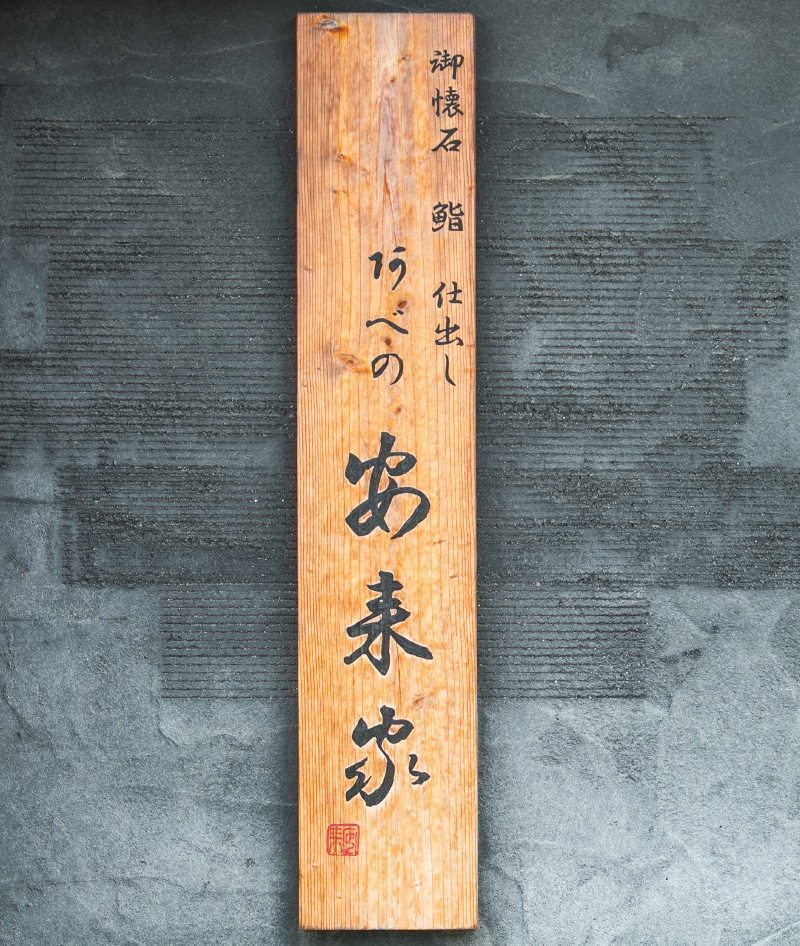 御懐石 鮨 仕出し
阿べの
安来家
安来